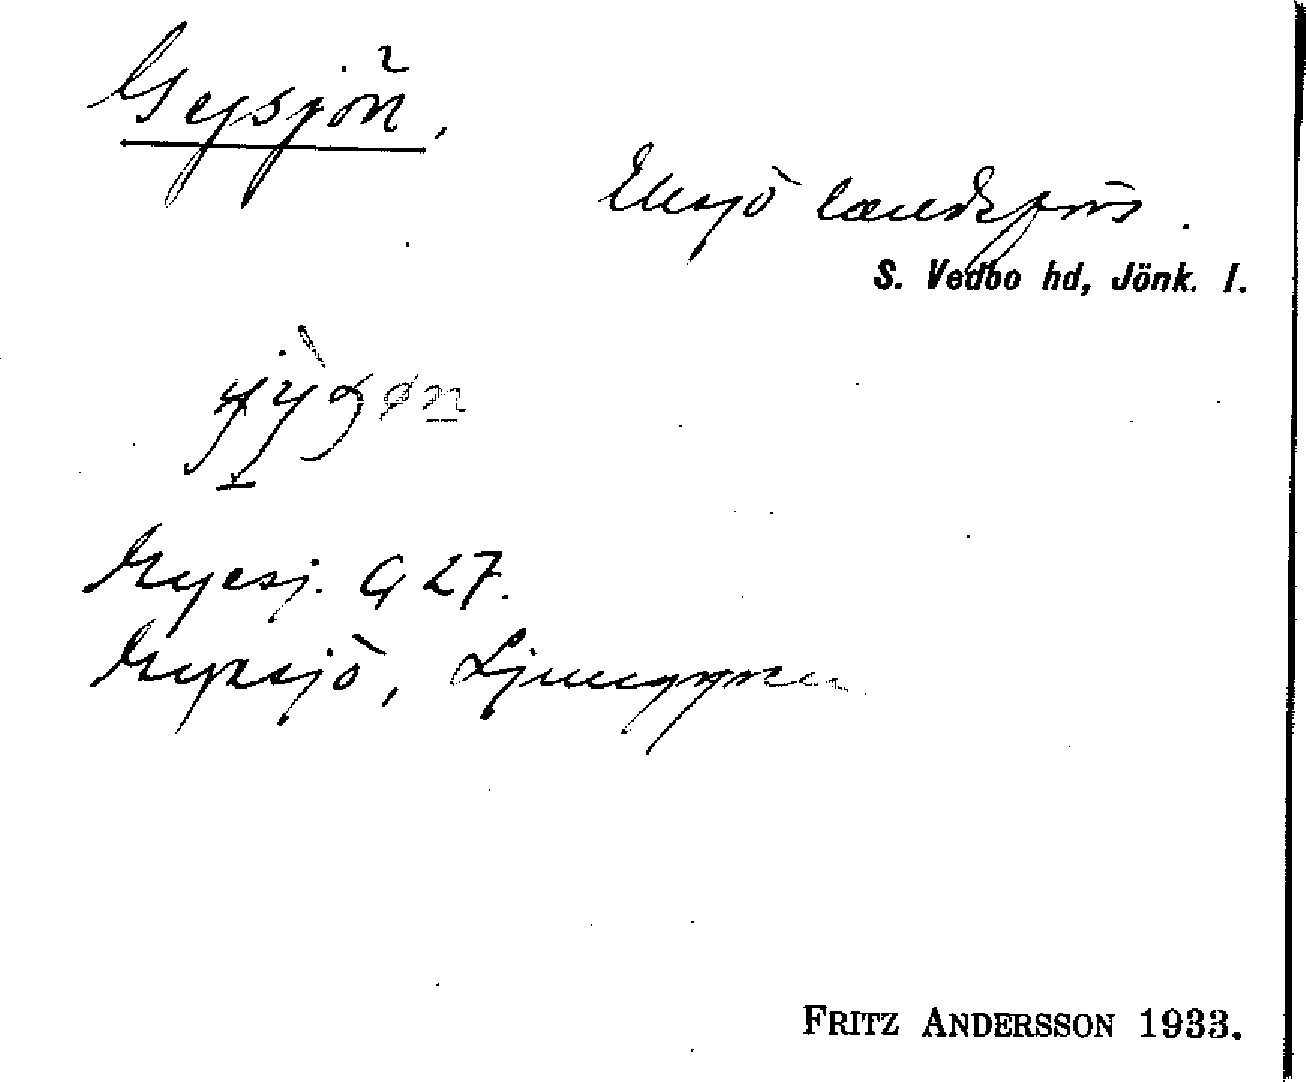 Gysjön.
Eksjö landsförs.
S. Vedbo hd, Jönk. l.
Myesj. G 27.
Myksjö, Ljunggren
FRITZ ANDERSSON 1933.